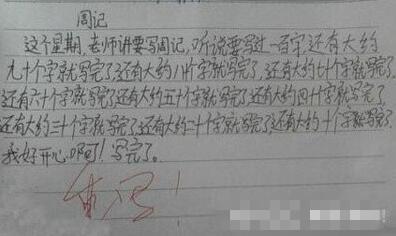 周记
这个星期,老师讲要写周记,听说要写过一百字,还有大约
九十个字就写完了,还有大约八十个字就写完了,还有大约七十个字就写完了,
还有六十个字就写完了还有大约五十个字就写完了还有大约四十个字就写完了
还有大约三十个字就写完了还有大约二十个字就写完了还有大约十个字就写完了.
我好开心啊!写完了。